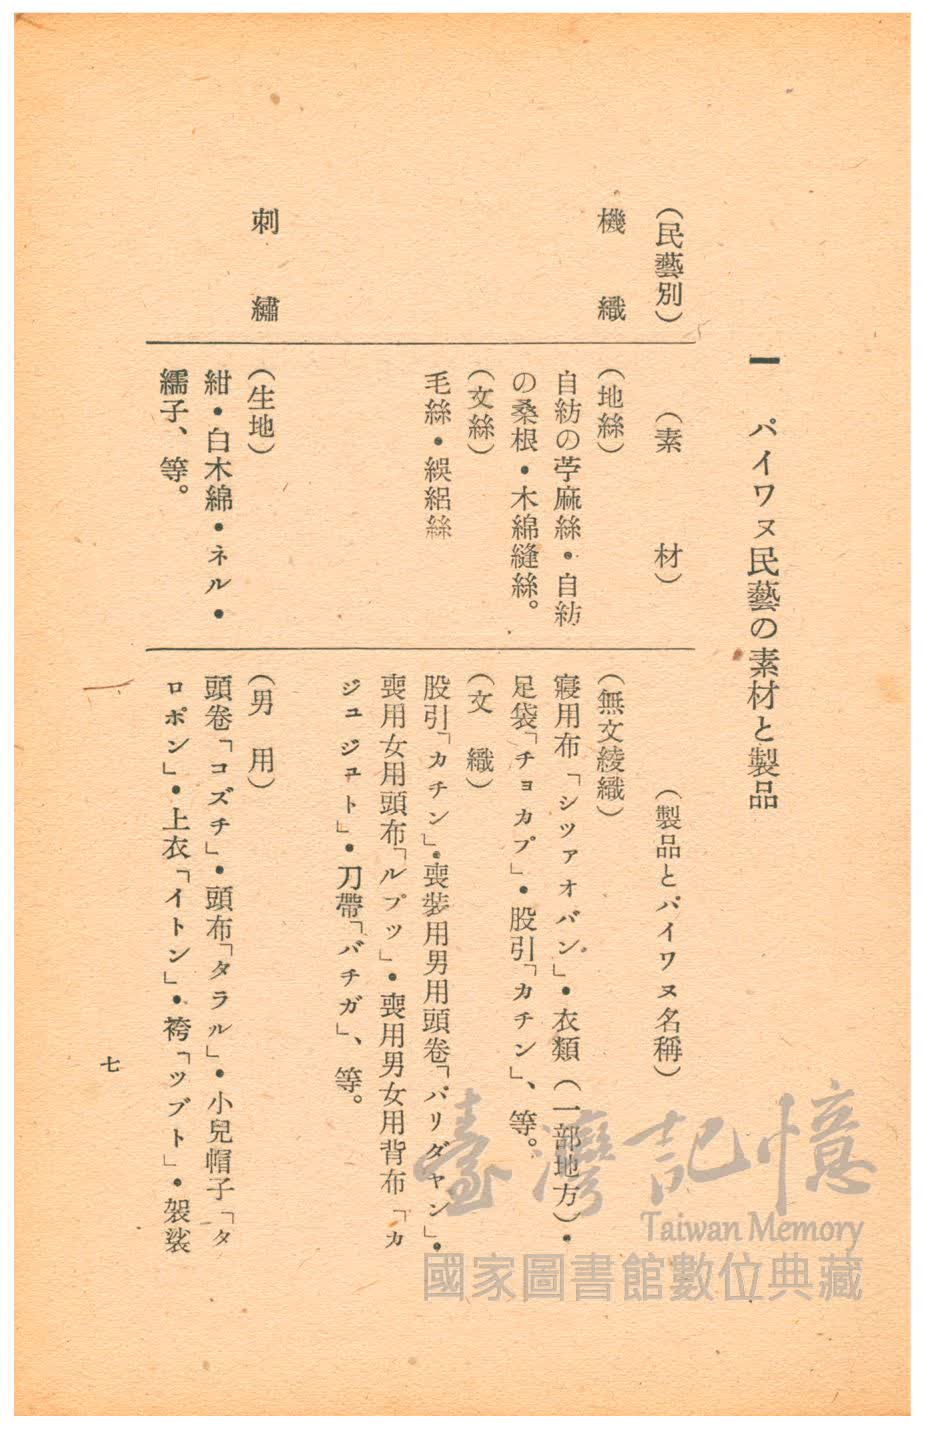 一　パイワヌ民藝の素材と製品
（民藝別）　（素　材）　（製品とパイワヌ名稱）
機　織
（地絲）
自紡の苧麻絲・自紡
の桑根・木綿縫絲。
（文絲）
毛絲・絽絲
（無文綾織）
寢用布「シツァオバン」・衣類（一部地方）・
足袋「チョカプ」・股引「カチン」、等。
（文　織）
股引「カチン」・喪裝用男用頭卷「バリダヤン」・
喪用女用頭布「ルプツ」・喪用男女用背布「カ
ジュジュト」・刀帶「バチガ」、等。
刺　繡
（生地）
紺・白木綿・ネル・
繻子、等。
（男　用）
頭卷「コズチ」・頭布「タラル」・小兒帽子「タ
ロポン」・上衣「イトン」・袴「ツブト」・袈裟
七
臺灣記憶
Taiwan Memory
國家圖書館數位典藏